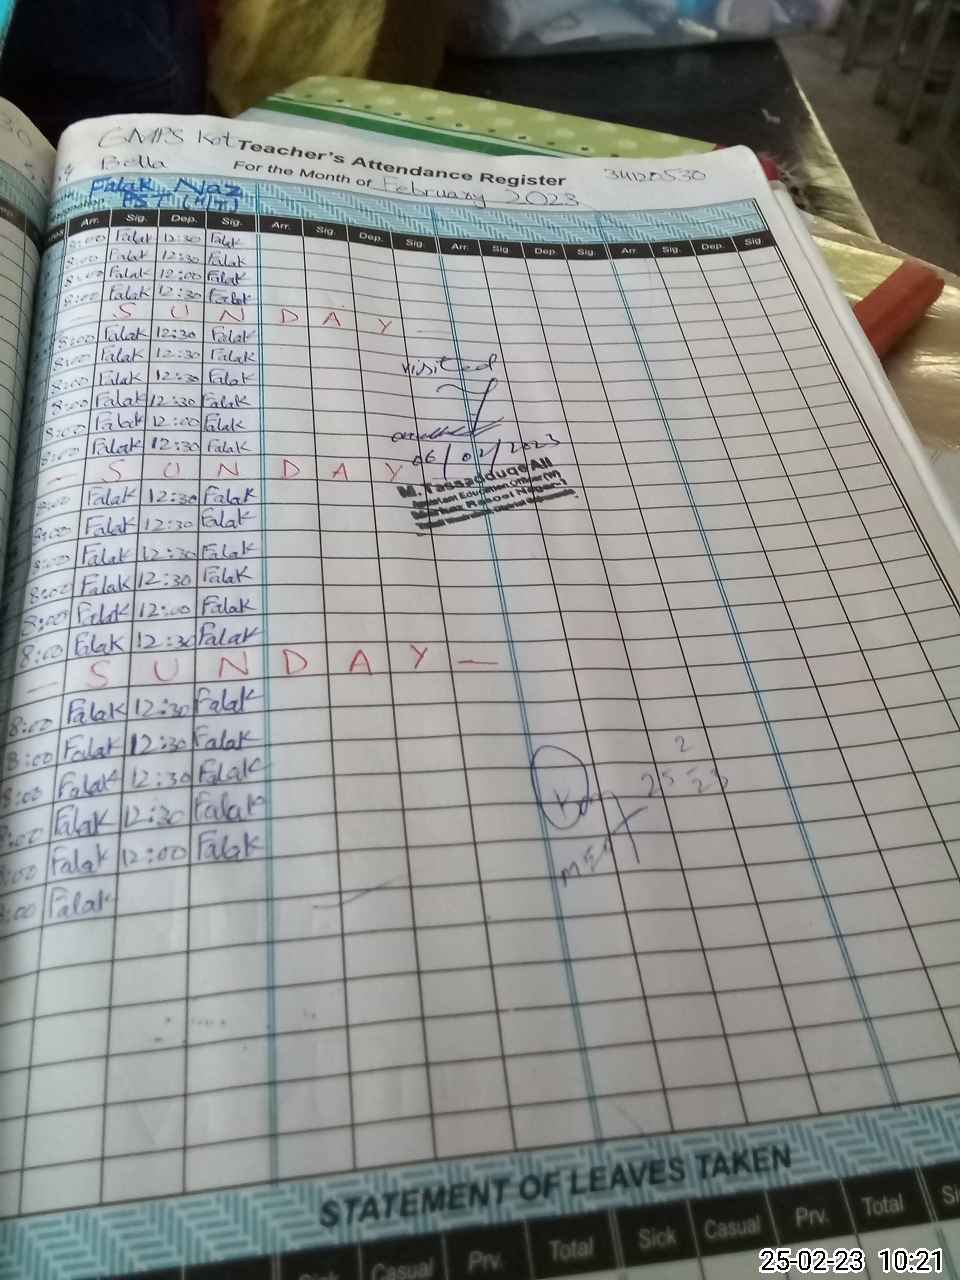 GMPS Kot Teacher's Attendance Register 34120530
Bella For the Month of February 2023
Falak Naz
PST (M/T)
Arr. Sig. Dep. Sig. Arr. Sig. Dep. Sig. Arr. Sig. Dep. Sig. Arr. Sig. Dep. Sig.
8:00 Falak 12:30 Falak
8:00 Falak 12:30 Falak
8:00 Falak 12:00 Falak
8:00 Falak 12:30 Falak
S U N D A Y
8:00 Falak 12:30 Falak
8:00 Falak 12:30 Falak
visited
8:00 Falak 12:30 Falak
8:00 Falak 12:30 Falak
8:00 Falak 12:00 Falak
8:00 Falak 12:30 Falak
06/02/2023
S U N D A Y
M. Tassadduqe Ali
Assistant Education Officer (W)
Markaz Rasool Nagar-I
8:00 Falak 12:30 Falak
8:00 Falak 12:30 Falak
8:00 Falak 12:30 Falak
8:00 Falak 12:30 Falak
8:00 Falak 12:00 Falak
8:00 Falak 12:30 Falak
— S U N D A Y —
8:00 Falak 12:30 Falak
8:00 Falak 12:30 Falak
8:00 Falak 12:30 Falak
8:00 Falak 12:30 Falak
8:00 Falak 12:00 Falak
8:00 Falak
25 2 23
STATEMENT OF LEAVES TAKEN
Sick Casual Prv. Total Sick Casual Prv. Total
25-02-23 10:21